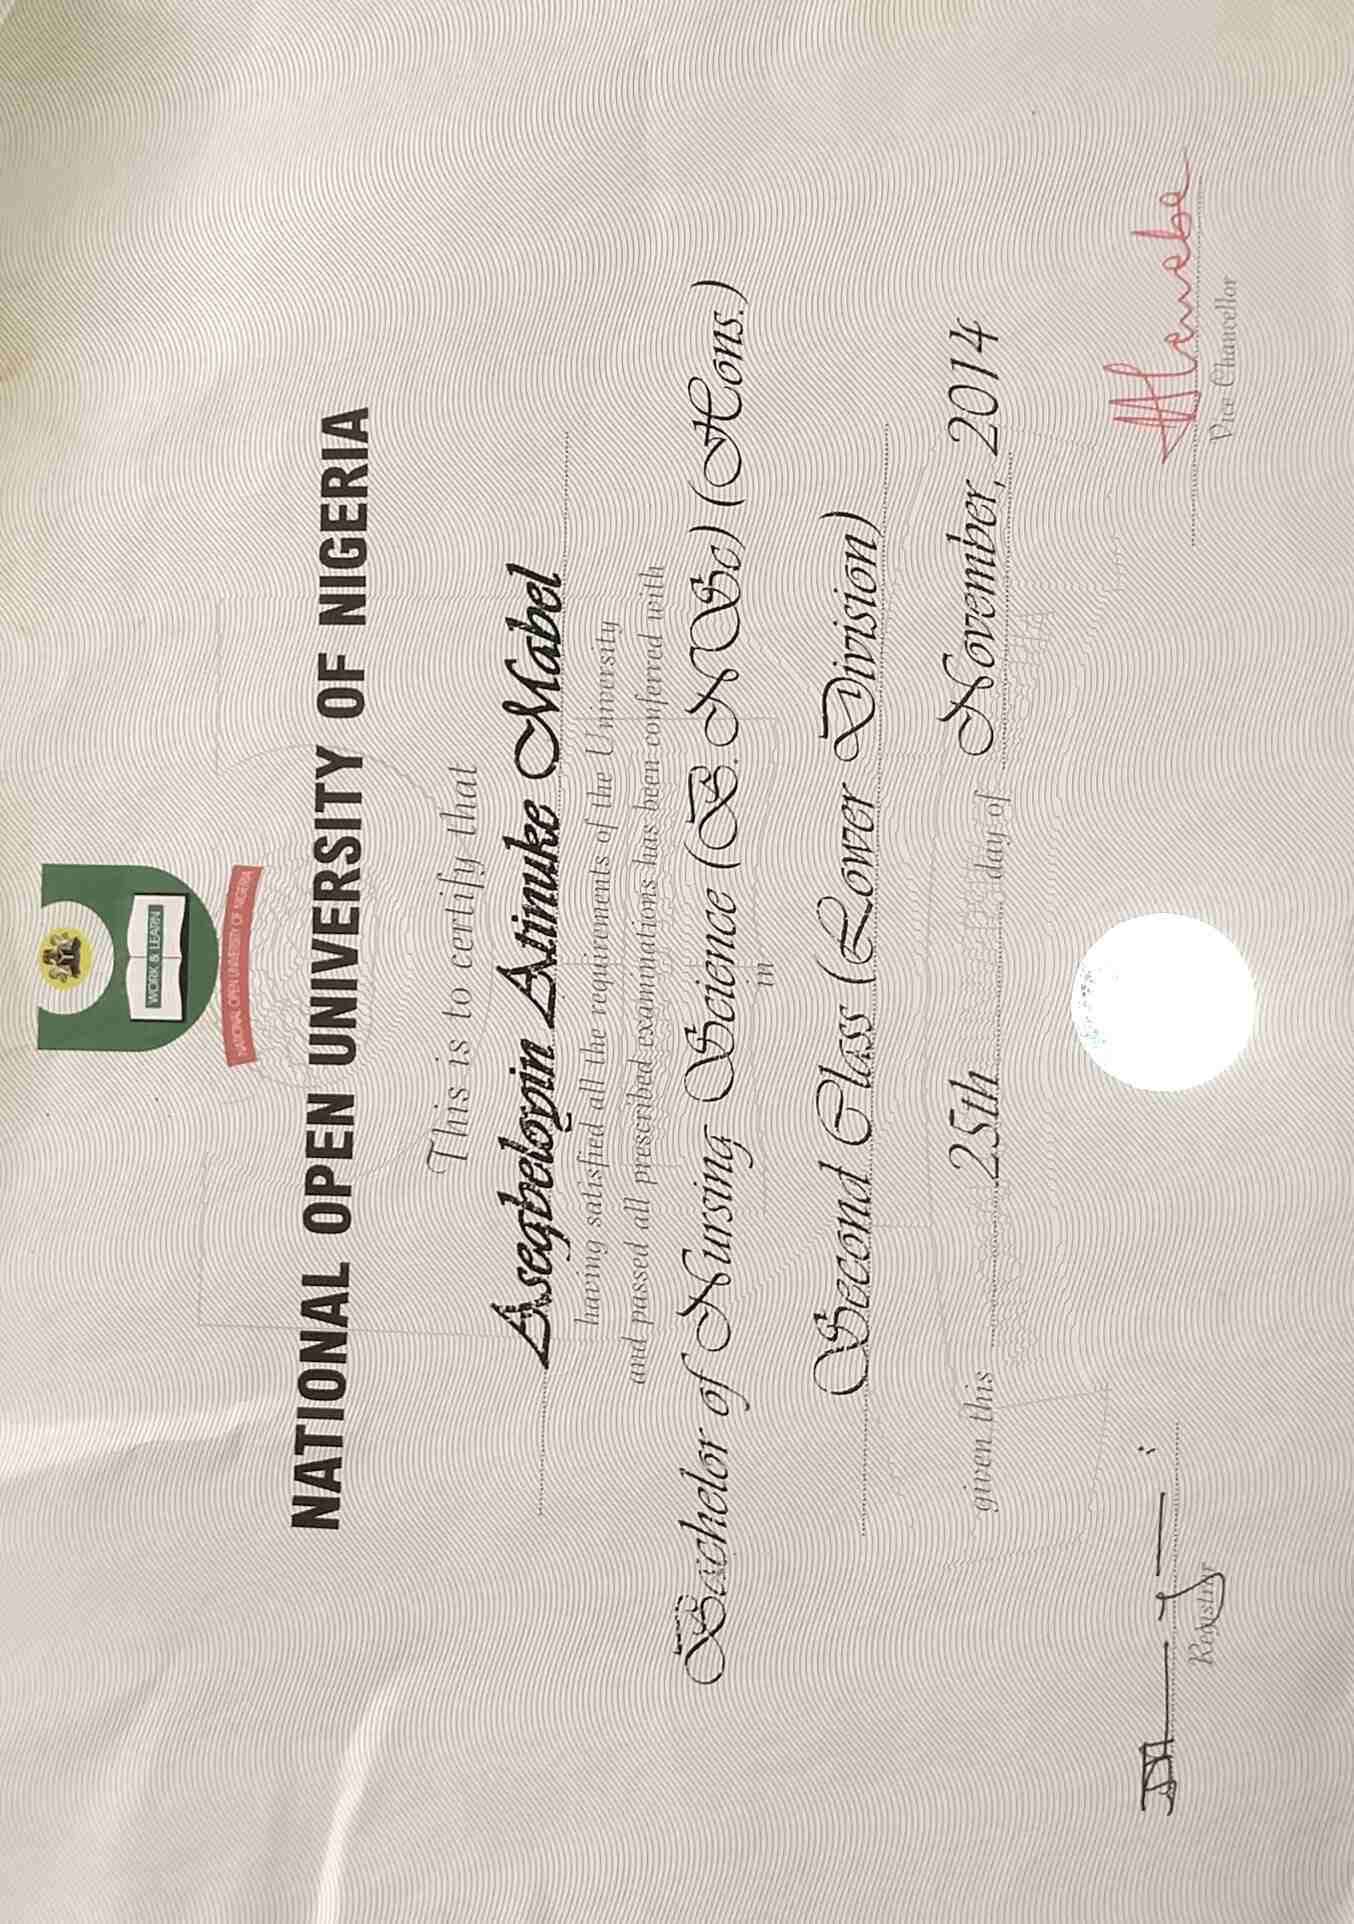 WORK & LEARN
NATIONAL OPEN UNIVERSITY OF NIGERIA
NATIONAL OPEN UNIVERSITY OF NIGERIA
This is to certify that
Asegbeloyin Atinuke Mabel
having satisfied all the requirements of the University
and passed all prescribed examinations has been conferred with
Bachelor of Nursing Science (B.NSc) (Hons.)
in
Second Class (Lower Division)
given this 25th day of November, 2014
Registrar
Vice Chancellor